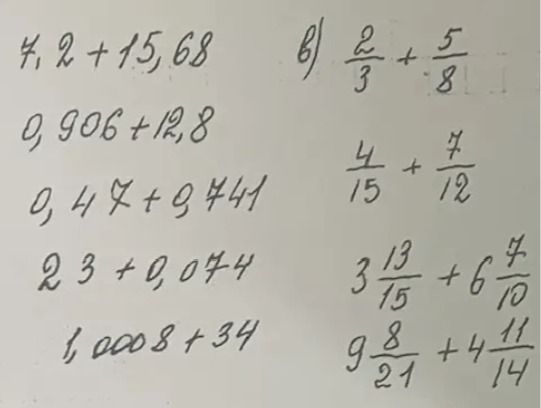 7,2 + 15,68
0,906 + 12,8
0,47 + 0,741
23 + 0,074
1,0008 + 34
в) 2/3 + 5/8
4/15 + 7/12
3 13/15 + 6 7/10
9 8/21 + 4 11/14